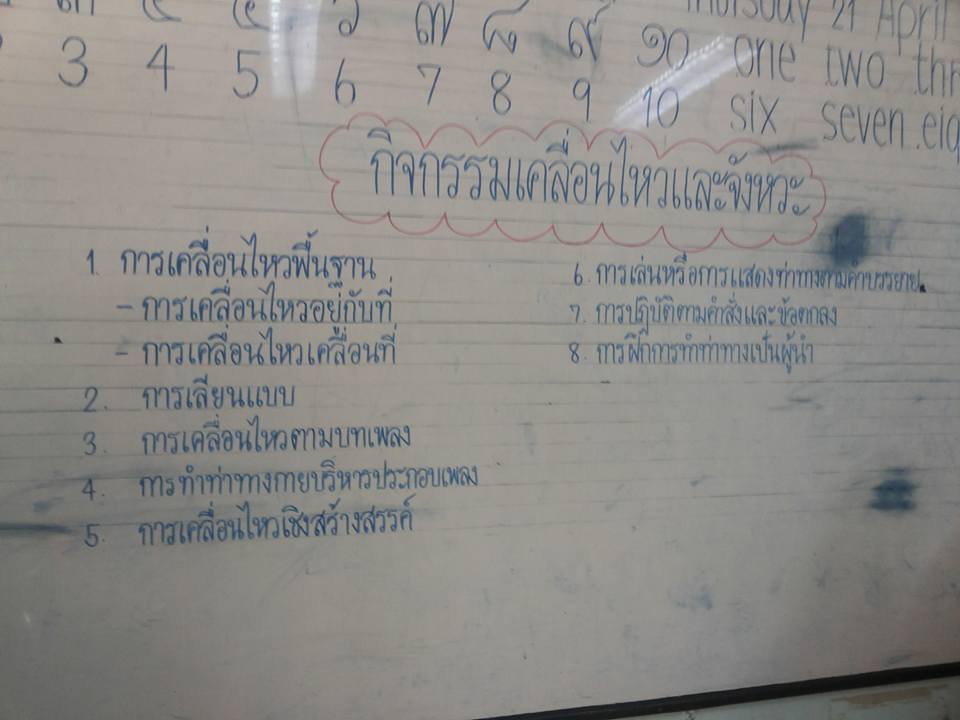 ๓ ๔ ๕ ๖ ๗ ๘ ๙ ๑๐ Thursday 21 April
3 4 5 6 7 8 9 10 one two
six seven.
กิจกรรมเคลื่อนไหวและจังหวะ
1. การเคลื่อนไหวพื้นฐาน
- การเคลื่อนไหวอยู่กับที่
- การเคลื่อนไหวเคลื่อนที่
2. การเลียนแบบ
3. การเคลื่อนไหวตามบทเพลง
4. การทำท่าทางกายบริหารประกอบเพลง
5. การเคลื่อนไหวเชิงสร้างสรรค์
6. การเล่นหรือการแสดงท่าทางตามคำบรรยาย
7. การปฏิบัติตามคำสั่งและข้อตกลง
8. การฝึกการทำท่าทางเป็นผู้นำ